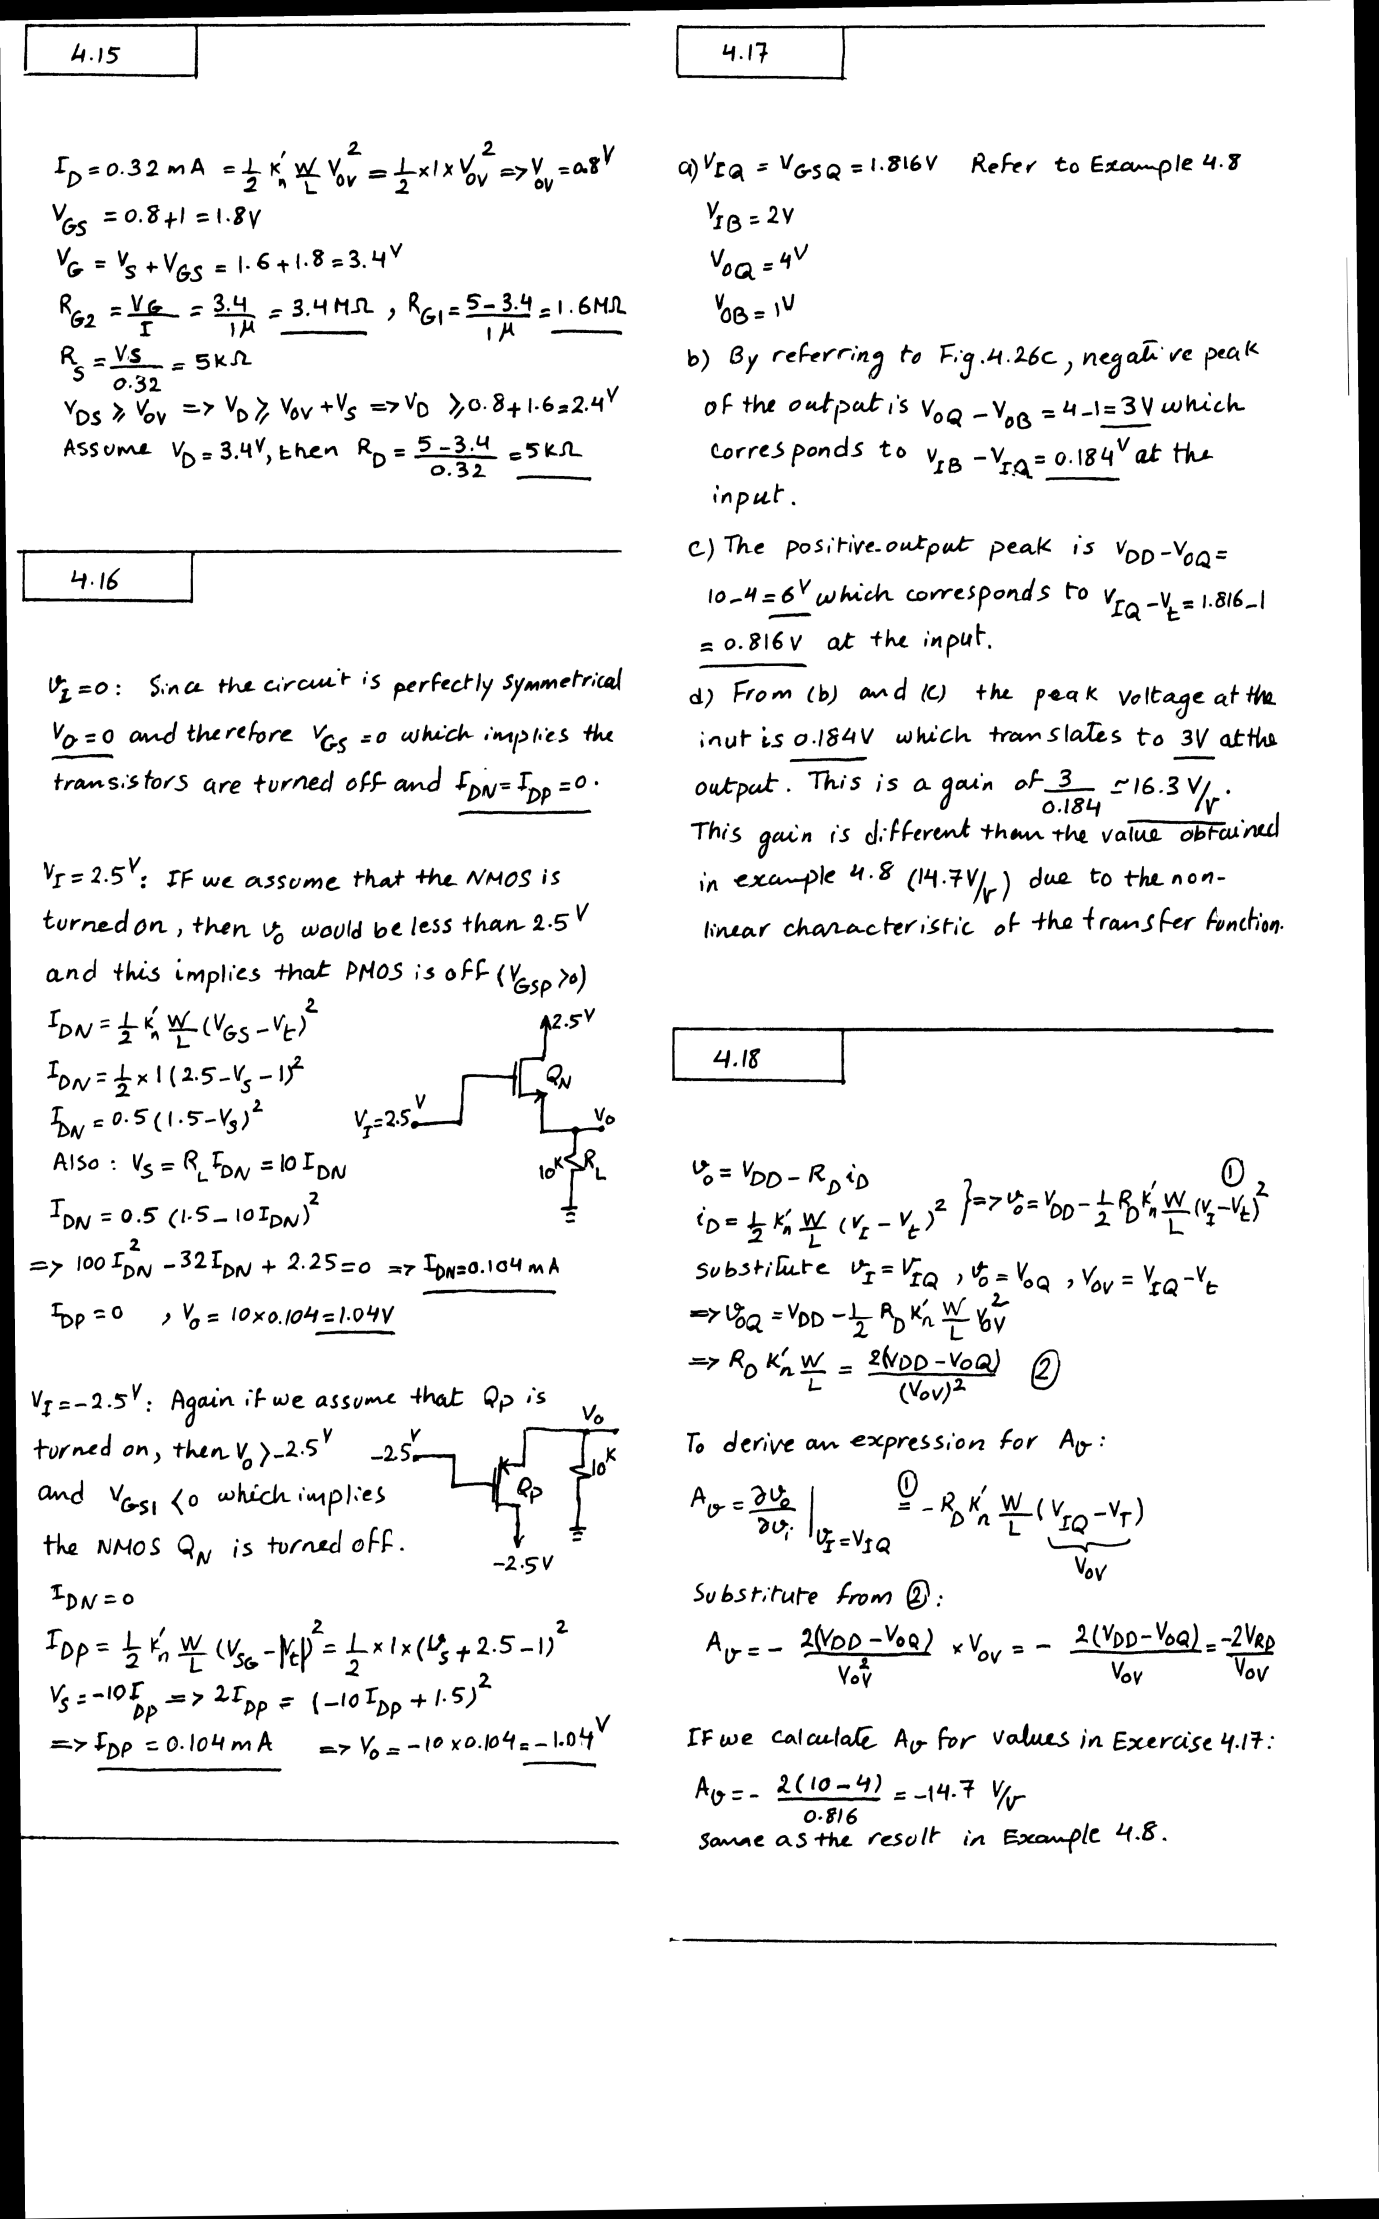 4.15
I_D = 0.32 mA = 1/2 K'_n W/L V_OV^2 = 1/2 × 1 × V_OV^2 => V_OV = 0.8V
V_GS = 0.8+1 = 1.8V
V_G = V_S + V_GS = 1.6+1.8 = 3.4V
R_G2 = V_G/I = 3.4/1μ = 3.4 MΩ , R_G1 = (5-3.4)/1μ = 1.6MΩ
R_S = V_S/0.32 = 5KΩ
V_DS ≥ V_OV => V_D ≥ V_OV + V_S => V_D ≥ 0.8+1.6=2.4V
Assume V_D = 3.4V, then R_D = (5-3.4)/0.32 = 5KΩ
4.16
v_I=0: Since the circuit is perfectly symmetrical
V_O=0 and therefore V_GS=0 which implies the
transistors are turned off and I_DN=I_DP=0.
V_I=2.5V: IF we assume that the NMOS is
turned on, then v_O would be less than 2.5V
and this implies that PMOS is off (V_GSP>0)
I_DN = 1/2 K'_n W/L (V_GS - V_t)^2
I_DN = 1/2 × 1 (2.5-V_S-1)^2
I_DN = 0.5 (1.5-V_S)^2
Also : V_S = R_L I_DN = 10 I_DN
I_DN = 0.5 (1.5-10I_DN)^2
2.5V
Q_N
V_I=2.5V
V_O
10K
R_L
=> 100 I_DN^2 - 32I_DN + 2.25=0 => I_DN=0.104 mA
I_DP = 0 , V_O = 10×0.104=1.04V
V_I=-2.5V: Again if we assume that Q_P is
turned on, then V_O >-2.5V
and V_GS1 <0 which implies
the NMOS Q_N is turned off.
V_O
-2.5V
Q_P
10K
-2.5V
I_DN=0
I_DP = 1/2 K'_n W/L (V_SG-|V_t|)^2 = 1/2 × 1 × (v_S + 2.5-1)^2
V_S = -10I_DP => 2I_DP = (-10 I_DP + 1.5)^2
=> I_DP = 0.104 mA => V_O = -10 × 0.104 = -1.04V
4.17
a) V_IQ = V_GSQ = 1.816V Refer to Example 4.8
V_IB = 2V
V_OQ = 4V
V_OB = 1V
b) By referring to Fig.4.26c, negative peak
of the output is V_OQ - V_OB = 4-1=3V which
corresponds to V_IB - V_IQ = 0.184V at the
input.
c) The positive-output peak is V_DD-V_OQ=
10-4=6V which corresponds to V_IQ-V_t=1.816-1
= 0.816V at the input.
d) From (b) and (c) the peak voltage at the
inut is 0.184V which translates to 3V at the
output. This is a gain of 3/0.184 ≃ 16.3 V/V.
This gain is different than the value obtained
in example 4.8 (14.7V/V) due to the non-
linear characteristic of the transfer function.
4.18
v_O = V_DD - R_D i_D
i_D = 1/2 K'_n W/L (v_I - V_t)^2 } => v_O = V_DD - 1/2 R_D K'_n W/L (v_I - V_t)^2 ①
substitute v_I = V_IQ , v_O = V_OQ , V_OV = V_IQ - V_t
=> V_OQ = V_DD - 1/2 R_D K'_n W/L V_OV^2
=> R_D K'_n W/L = 2(V_DD - V_OQ)/(V_OV)^2 ②
To derive an expression for A_v:
A_v = ∂v_o/∂v_i |_{v_I=V_IQ} ①= -R_D K'_n W/L (V_IQ - V_T)
V_OV
Substitute from ②:
A_v = - 2(V_DD - V_OQ)/V_OV^2 × V_OV = - 2(V_DD-V_OQ)/V_OV = -2V_RD/V_OV
IF we calculate A_v for values in Exercise 4.17:
A_v = - 2(10-4)/0.816 = -14.7 V/V
same as the result in Example 4.8.